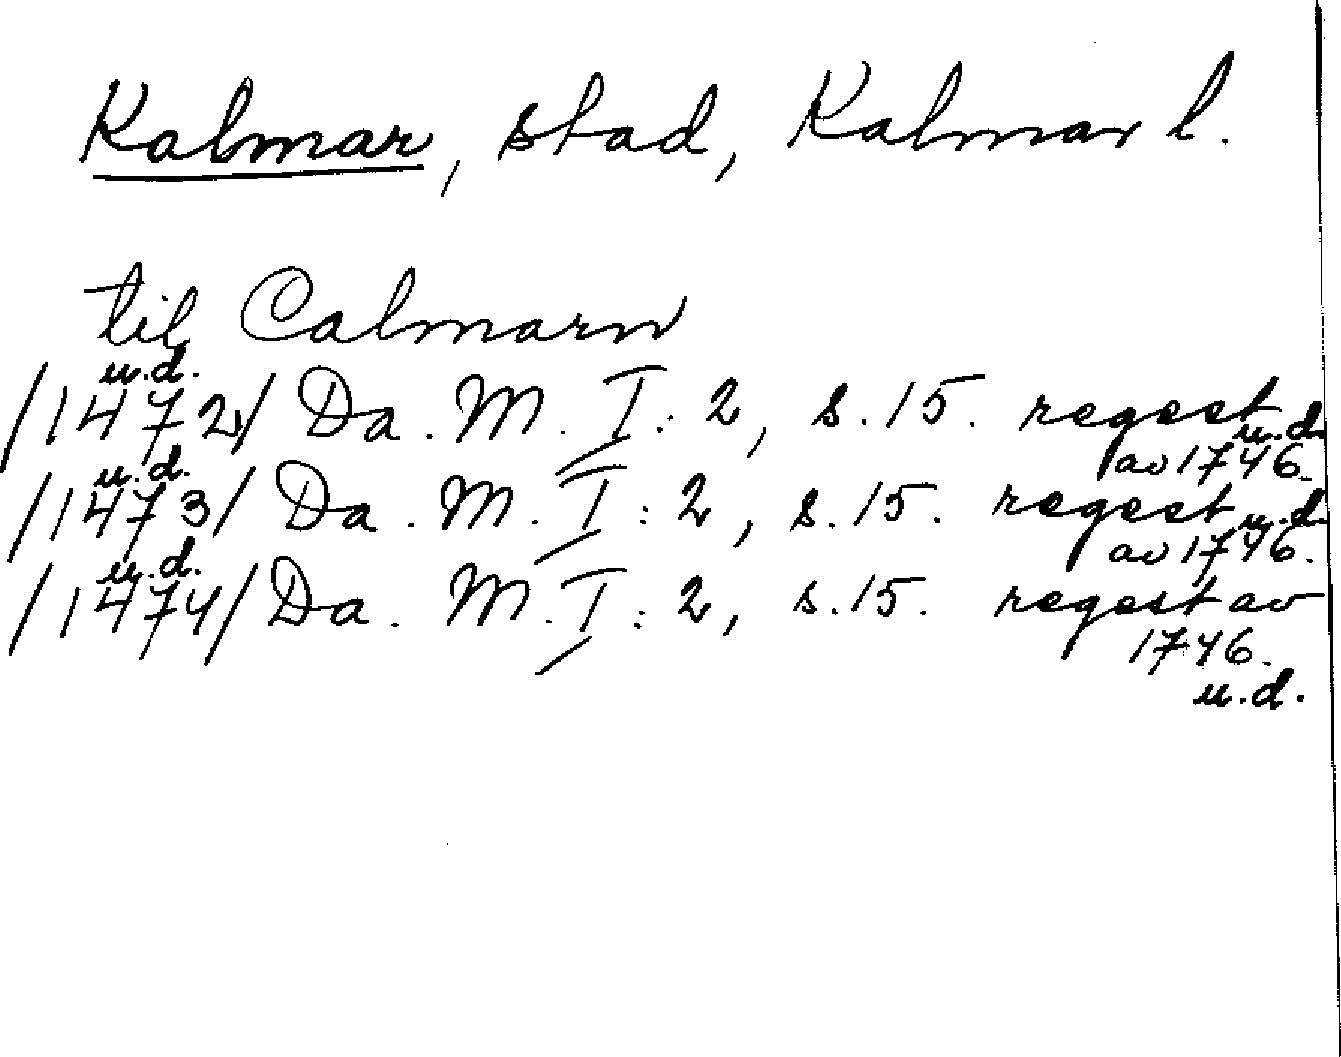 Kalmar, stad, Kalmar l.
til Calmarn
u.d.
/1472/ Da. M. I: 2, s. 15. regest
av 1746. u.d.
u.d.
/1473/ Da. M. I: 2, s. 15. regest
av 1746. u.d.
u.d.
/1474/ Da. M. I: 2, s. 15. regest av
1746.
u.d.